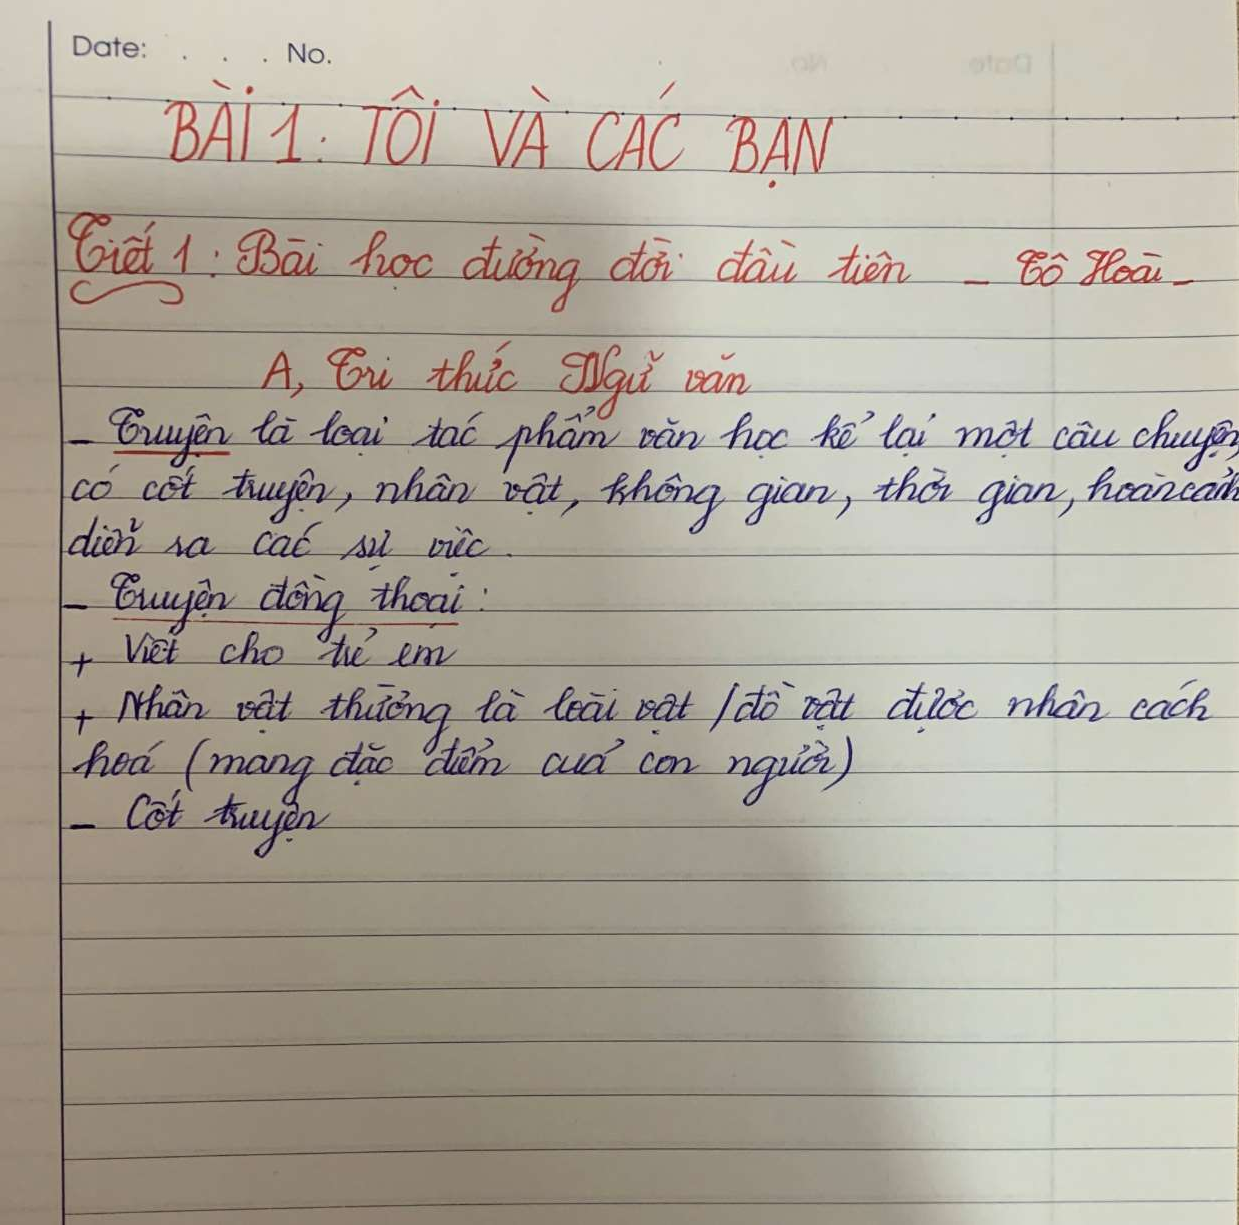 Date: . . . No.
BÀI 1: TÔI VÀ CÁC BẠN
Tiết 1: Bài học đường đời đầu tiên - Tô Hoài -
A, Tri thức Ngữ văn
- Truyện là loại tác phẩm văn học kể lại một câu chuyện,
có cốt truyện, nhân vật, không gian, thời gian, hoàn cảnh
diễn ra các sự việc.
- Truyện đồng thoại:
+ Viết cho trẻ em
+ Nhân vật thường là loài vật / đồ vật được nhân cách
hoá (mang đặc điểm của con người)
- Cốt truyện